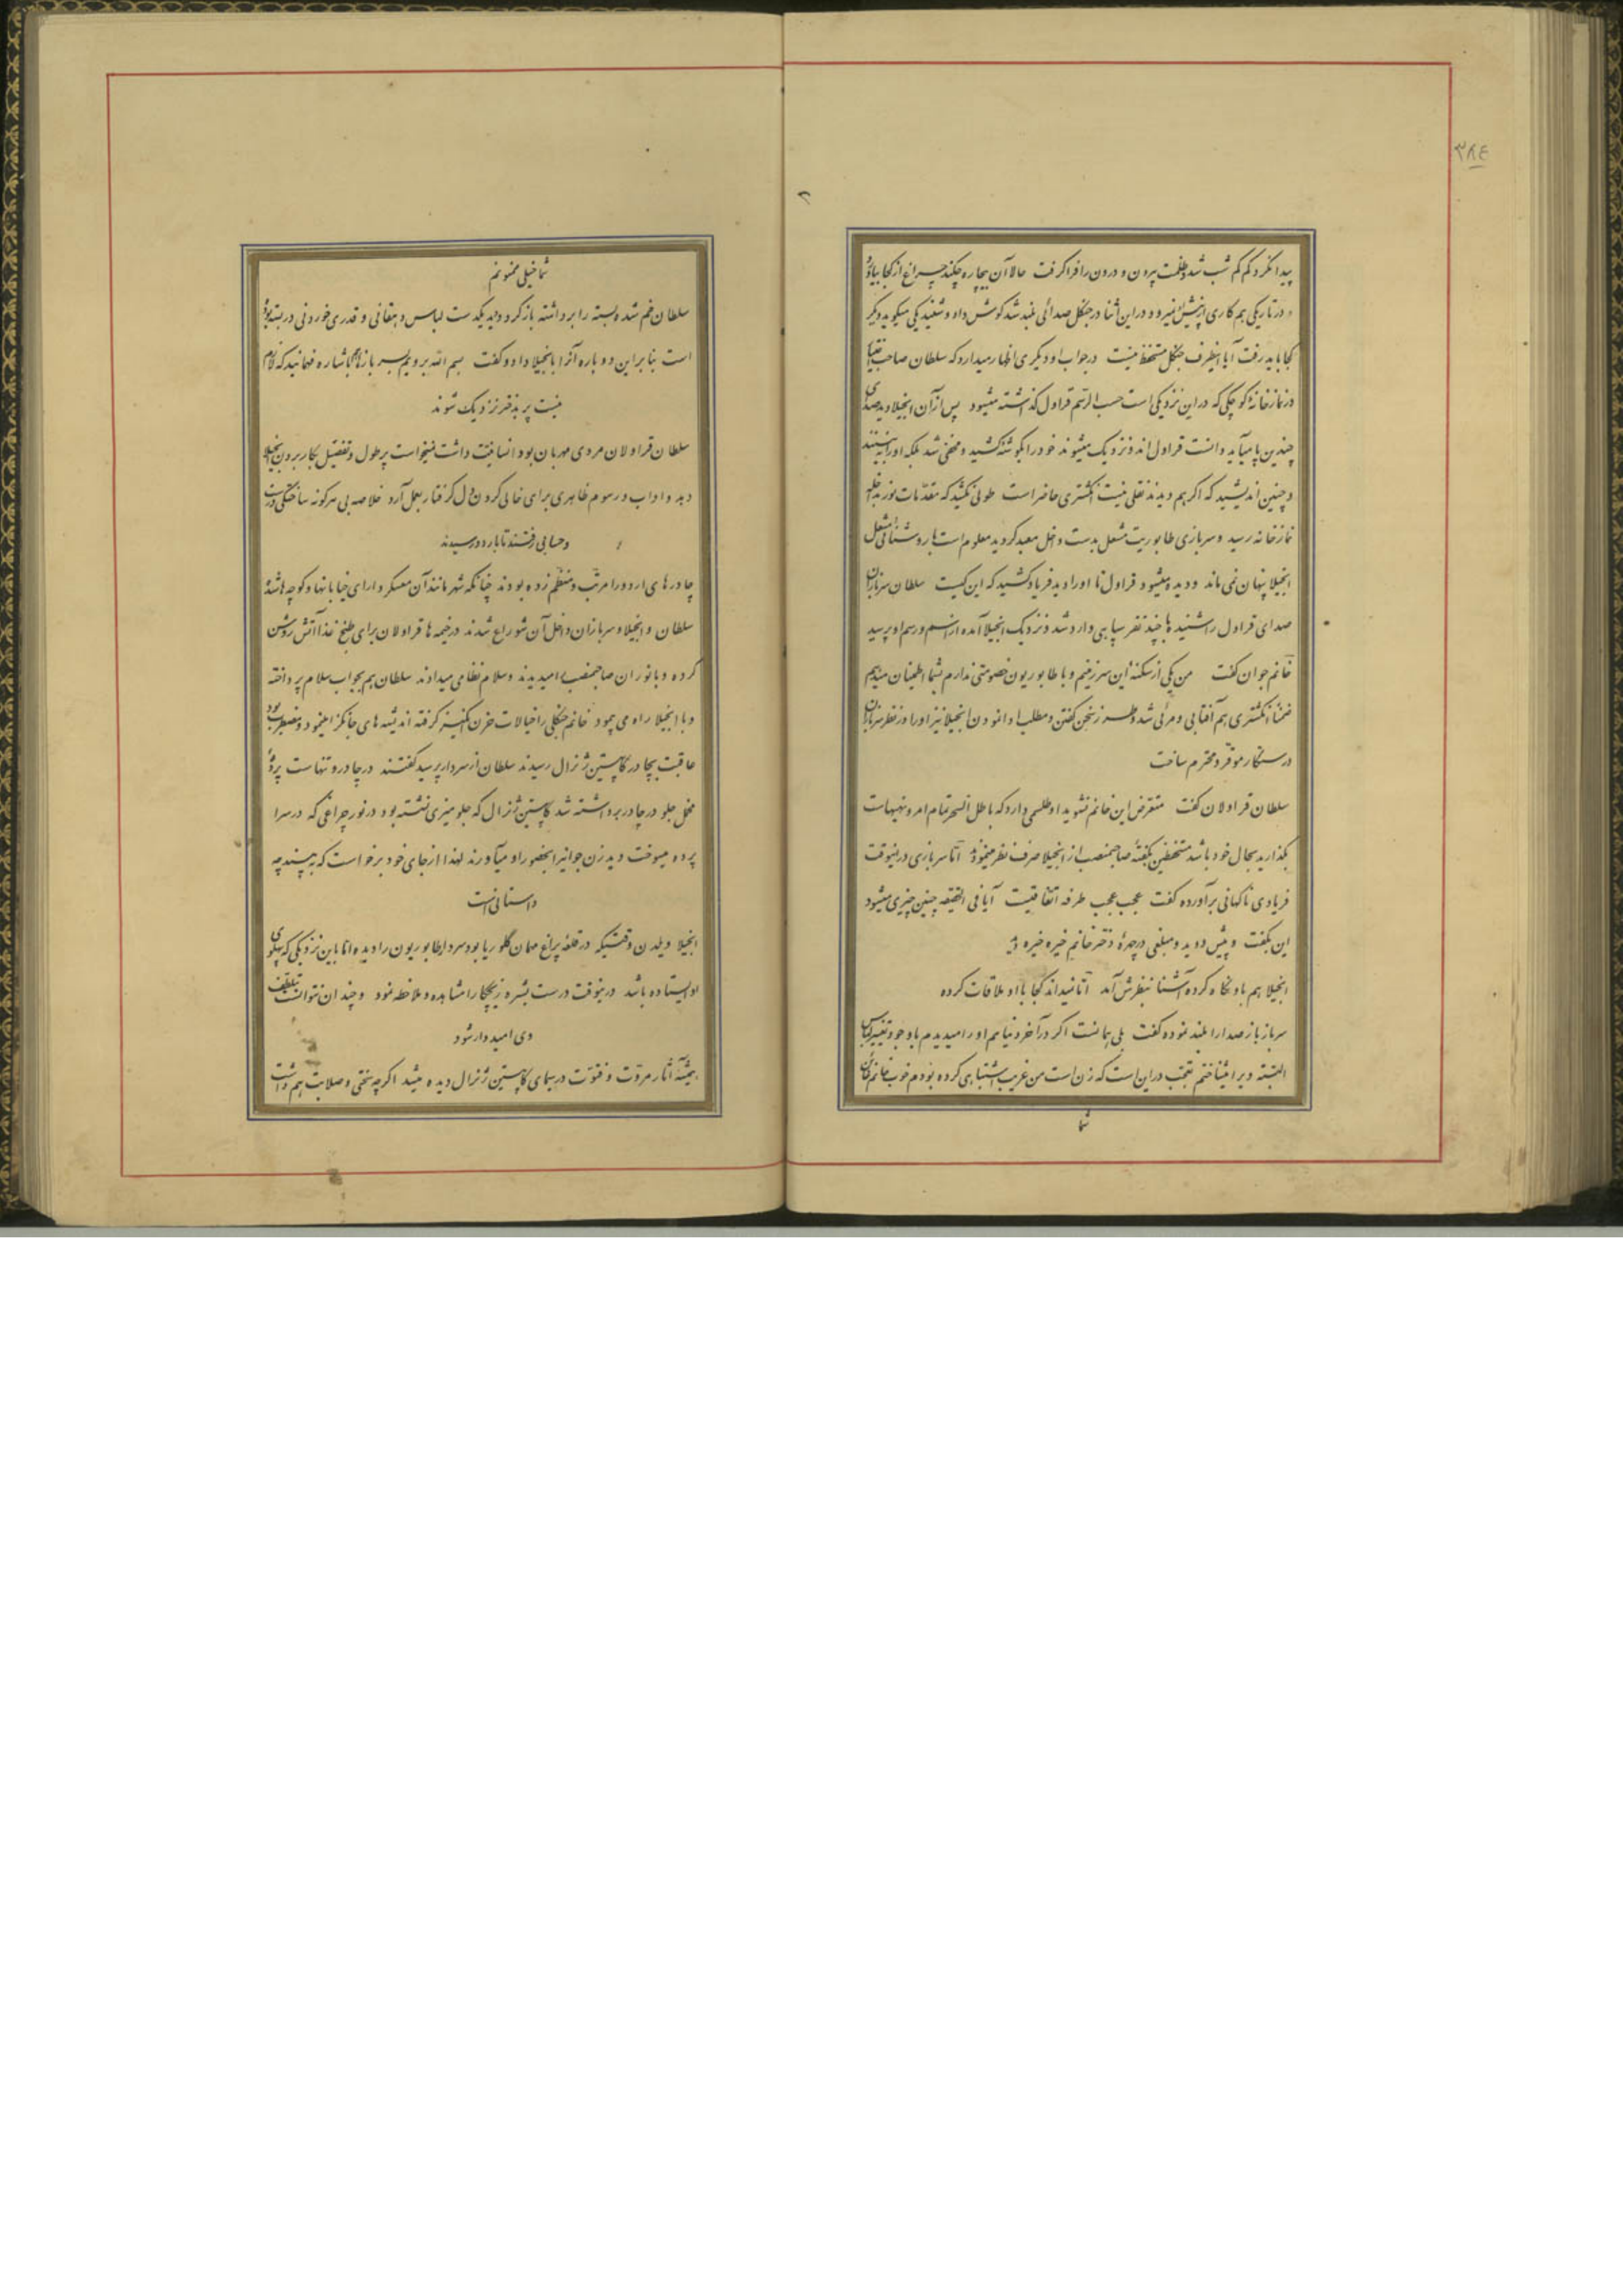 ۳۸۴
پیدا نکرد کم کم شب شد و ظلمت بیرون و درون را فرا گرفت حالا آن بیچاره چکند چراغ از کجا بیاورد
و در تاریکی هم کاری از پیش نمیرود در این اثنا در جنگل صدائی بلند شد گوش داد و شنید یکی میگوید دیگر
کجا باید رفت آیا اینطرف جنگل مستحفظ نیست در جواب او دیگری اظهار میدارد که سلطان صاحب
در نمازخانهٔ کوچکی که در این نزدیکی است حسب الرسم قراول گذاشته میشود پس از آن انجیلا دید صدای
چندین پا میآید دانست قراول‌اند و نزدیک میشوند خود را بگوشه کشید و مخفی شد بلکه او را نه بینند
و چنین اندیشید که اگر هم دیدند نقلی نیست انگشتری حاضر است طولی نکشید که مقدمات نور بداخله
نمازخانه رسید و سربازی طابوریت مشعل بدست داخل معبد گردید معلوم است با روشنائی مشعل
انجیلا پنهان نمی ماند و دیده میشود قراول تا او را دید فریاد کشید که این کیست سلطان سربازان
صدای قراول را شنید با چند نفر سپاهی وارد شد و نزدیک انجیلا آمده از اسم و رسم او پرسید
خانم جوان گفت من یکی از سکنهٔ این سرزمینم و با طابوریون خصومتی ندارم بشما اطمینان میدهم
ضمناً انگشتری هم آفتابی و مرئی شد و طرز سخن گفتن و مطلب ادا نمودن انجیلا نیز او را در نظر سربازان
درستکار موقر و محترم ساخت
سلطان قراولان گفت متعرض این خانم نشوید او طلسمی دارد که باطل السحر تمام امر و نهیهاست
بگذارید بحال خود باشد مستحفظین بگفتهٔ صاحبمنصب از انجیلا صرف نظر مینمودند اما سربازی در اینوقت
فریادی ناگهانی برآورده گفت عجب عجب طرفه اتفاقیست آیا فی الحقیقه چنین چیزی میشود
این بگفت و پیش دوید و مبلغی در چهرهٔ دختر خانم خیره خیره دید
انجیلا هم باو نگاه کرده آشنا بنظرش آمد اما نمیداند کجا با او ملاقات کرده
سرباز باز صدا را بلند نموده گفت بلی همانست اگر در آخر دنیا هم او را میدیدم با وجود تغییر لباس
البته ویرا میشناختم تعجب در این است که زن است من غریب اشتباهی کرده بودم خوب خانم
شما
شما خیلی ممنونم
سلطان خم شده بسته را برداشته باز کرد و دید یکدست لباس دهقانی و قدری خوردنی در بسته بوده
است بنابراین دوباره آنرا بانجیلا داد و گفت بسم الله برویم بسربازها هم باشاره فهمانید که لازم
نیست پر بدختر نزدیک شوند
سلطان قراولان مردی مهربان بود انسانیت داشت نمیخواست پر طول و تفصیل بکار برد و انجیلا
دید و آداب و رسوم ظاهری برای خالی کردن دل گرفتار بعمل آرد خلاصه بی هرگونه ساختگی درست
و حسابی رفتند تا باردو رسیدند
چادرهای اردو را مرتب و منظم زده بودند چنانکه شهر مانند آن معسکر دارای خیابانها و کوچه‌ها شده
سلطان و انجیلا و سربازان داخل آن شوارع شدند در خیمه‌ها قراولان برای طبخ غذا آتش روشن
کرده و بانور آن صاحبمنصب را میدیدند و سلام نظامی میدادند سلطان هم بجواب سلام پرداخته
و با انجیلا راه می پیمود خانم جنگلی را خیالات حزن انگیز گرفته اندیشه های جانگزا مینمود و مضطرب بود
عاقبت بچادر کاپیتین ژنرال رسیدند سلطان از سردار پرسید گفتند در چادر و تنهاست پردهٔ
مخمل جلو در چادر برداشته شد کاپیتین ژنرال که جلو میزی نشسته بود در نور چراغی که در سرا
پرده میسوخت دید زن جوانیرا بحضور او میآورند لهذا از جای خود برخواست که به بیند چه
داستانی است
انجیلا ویلدن وقتیکه در قلعهٔ پراغ مهمان گلوریا بود سردار طابوریون را دیده اما باین نزدیکی که پهلوی
او ایستاده باشد در اینوقت درست بشره زیچکا را مشاهده و ملاحظه نمود و چندان نتوانست بتلطف
وی امیدوار شود
همیشه آثار مروت و فتوت در سیمای کاپیتین ژنرال دیده میشد اگرچه سختی و صلابت هم داشت